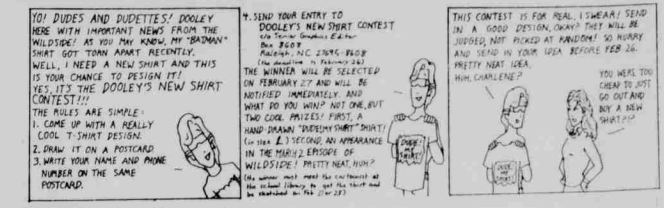 YO! DUDES AND DUDETTES! DOOLEY
HERE WITH IMPORTANT NEWS FROM THE
WILDSIDE! AS YOU MAY KNOW, MY "BATMAN"
SHIRT GOT TORN APART RECENTLY.
WELL, I NEED A NEW SHIRT AND THIS
IS YOUR CHANCE TO DESIGN IT!
YES, IT'S THE DOOLEY'S NEW SHIRT
CONTEST!!!
THE RULES ARE SIMPLE:
1. COME UP WITH A REALLY
COOL T-SHIRT DESIGN.
2. DRAW IT ON A POSTCARD.
3. WRITE YOUR NAME AND PHONE
NUMBER ON THE SAME
POSTCARD.
4. SEND YOUR ENTRY TO
DOOLEY'S NEW SHIRT CONTEST
c/o Senior Graphics Editor
Box 8608
Raleigh, NC 27695-8608
(the deadline is February 26)
THE WINNER WILL BE SELECTED
ON FEBRUARY 27 AND WILL BE
NOTIFIED IMMEDIATELY. AND
WHAT DO YOU WIN? NOT ONE, BUT
TWO COOL PRIZES! FIRST, A
HAND-DRAWN "DUDE! MY SHIRT" SHIRT!
(in size L) SECOND, AN APPEARANCE
IN THE MARCH 2 EPISODE OF
WILDSIDE! PRETTY NEAT, HUH?
(the winner must meet the cartoonist at
the school library to get the shirt and
be sketched on Feb 27 or 28)
DUDE!
MY
SHIRT!
THIS CONTEST IS FOR REAL, I SWEAR! SEND
IN A GOOD DESIGN, OKAY? THEY WILL BE
JUDGED, NOT PICKED AT RANDOM! SO HURRY
AND SEND IN YOUR IDEA BEFORE FEB 26.
PRETTY NEAT IDEA,
HUH, CHARLENE?
YOU WERE TOO
CHEAP TO JUST
GO OUT AND
BUY A NEW
SHIRT?!?
DUDE!
MY
SHIRT!